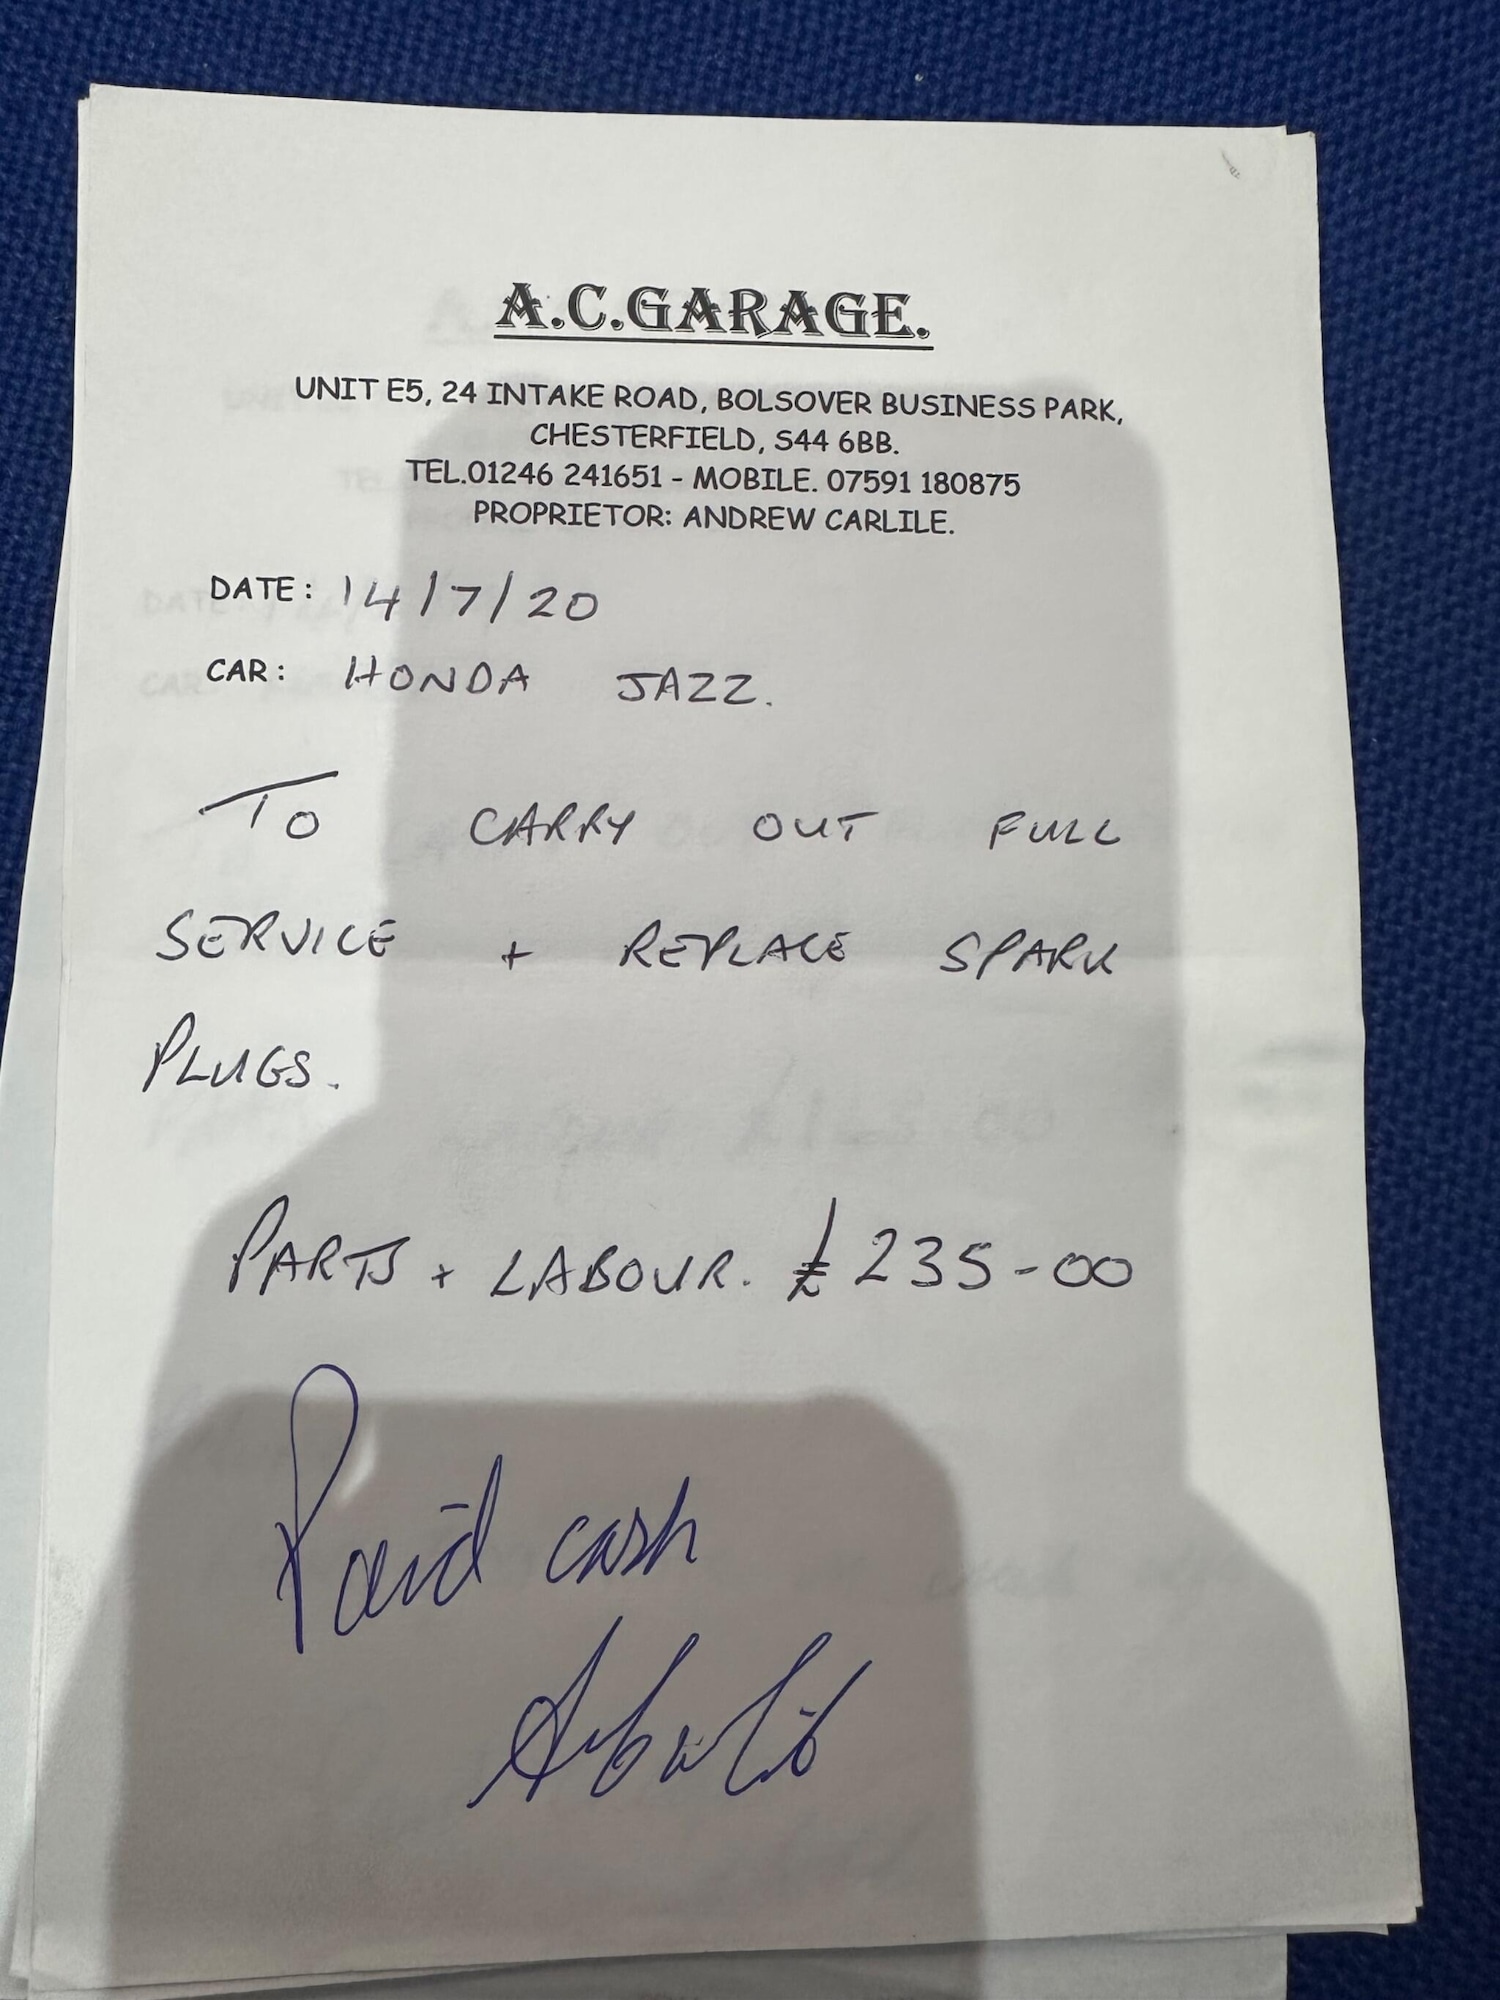 A.C.GARAGE.
UNIT E5, 24 INTAKE ROAD, BOLSOVER BUSINESS PARK,
CHESTERFIELD, S44 6BB.
TEL.01246 241651 - MOBILE. 07591 180875
PROPRIETOR: ANDREW CARLILE.
DATE: 14/7/20
CAR: HONDA JAZZ.
TO CARRY OUT FULL
SERVICE + REPLACE SPARK
PLUGS.
PARTS + LABOUR. £235-00
Paid cash